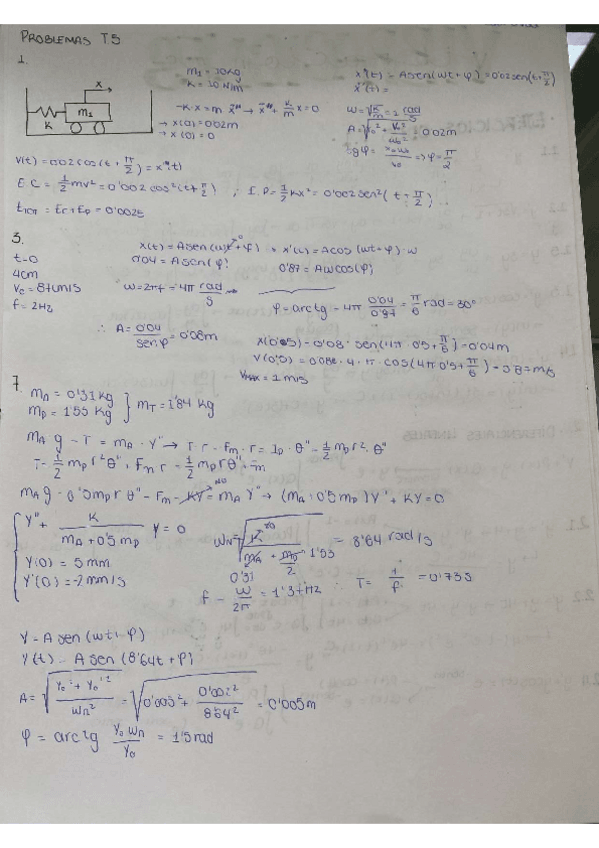 PROBLEMAS T5
1.
m₁ = 10kg
K = 10 N/m
x
m₁
K
-K·x = m x'' → x'' + K/m x = 0
→ x(0) = 0'02m
→ x'(0) = 0
x(t) = A sen(ωt + φ) = 0'02 sen(t + π/2)
x'(t) =
A = √(x₀² + v₀²/ω₀²) = 0'02m
tg φ = x₀ω₀/v₀ => φ = π/2
V(t) = 0'02 cos(t + π/2) = x'(t)
E.C = 1/2 mv² = 0'002 cos²(t + π/2) ; E.P = 1/2 Kx² = 0'002 sen²(t + π/2)
= Ec + Ep =
3.
t=0
4cm
V₀ = 87cm/s
f = 2Hz
x(t) = A sen(ωt + φ) x'(t) = A cos(ωt + φ)·ω
0'04 = A sen(φ) 0'87 = Aω cos(φ)
ω = 2πf = 4π rad/s
φ = arctg 4π 0'04/0'87 = π/6 rad = 30°
∴ A = 0'04/sen φ = 0'08m
x(0'5) = 0'08 · sen(4π · 0'5 + π/6) = 0'04m
V(0'5) = 0'08 · 4 · π · cos(4π 0'5 + π/6) = 0'87 m/s
Vmax = 1 m/s
7.
mA = 0'31 kg
mp = 1'53 kg
} mT = 1'84 kg
mA g - T = mA · Y'' → T·r - Fm·r = Ip·θ'' = 1/2 mp r²·θ''
mA g - 0'5 mp r θ'' - Fm - KY = mA Y'' → (mA + 0'5 mp) Y'' + KY = 0
Y'' + K/(mA + 0'5 mp) Y = 0
Y(0) = 5 mm
Y'(0) = -2 mm/s
ωn = √(K/(mA + mp/2)) = 8'64 rad/s
70
0'31
1'53
f = ω/2π = 1'37 Hz ∴ T = 1/f = 0'73s
Y = A sen(ωt + φ)
Y(t) = A sen(8'64t + φ)
A = √((Y₀² + Y₀'²)/ωn²) = √(0'005² + 0'002²/8'64²) = 0'005m
φ = arctg Y₀ωn/Y₀ = 1'5 rad